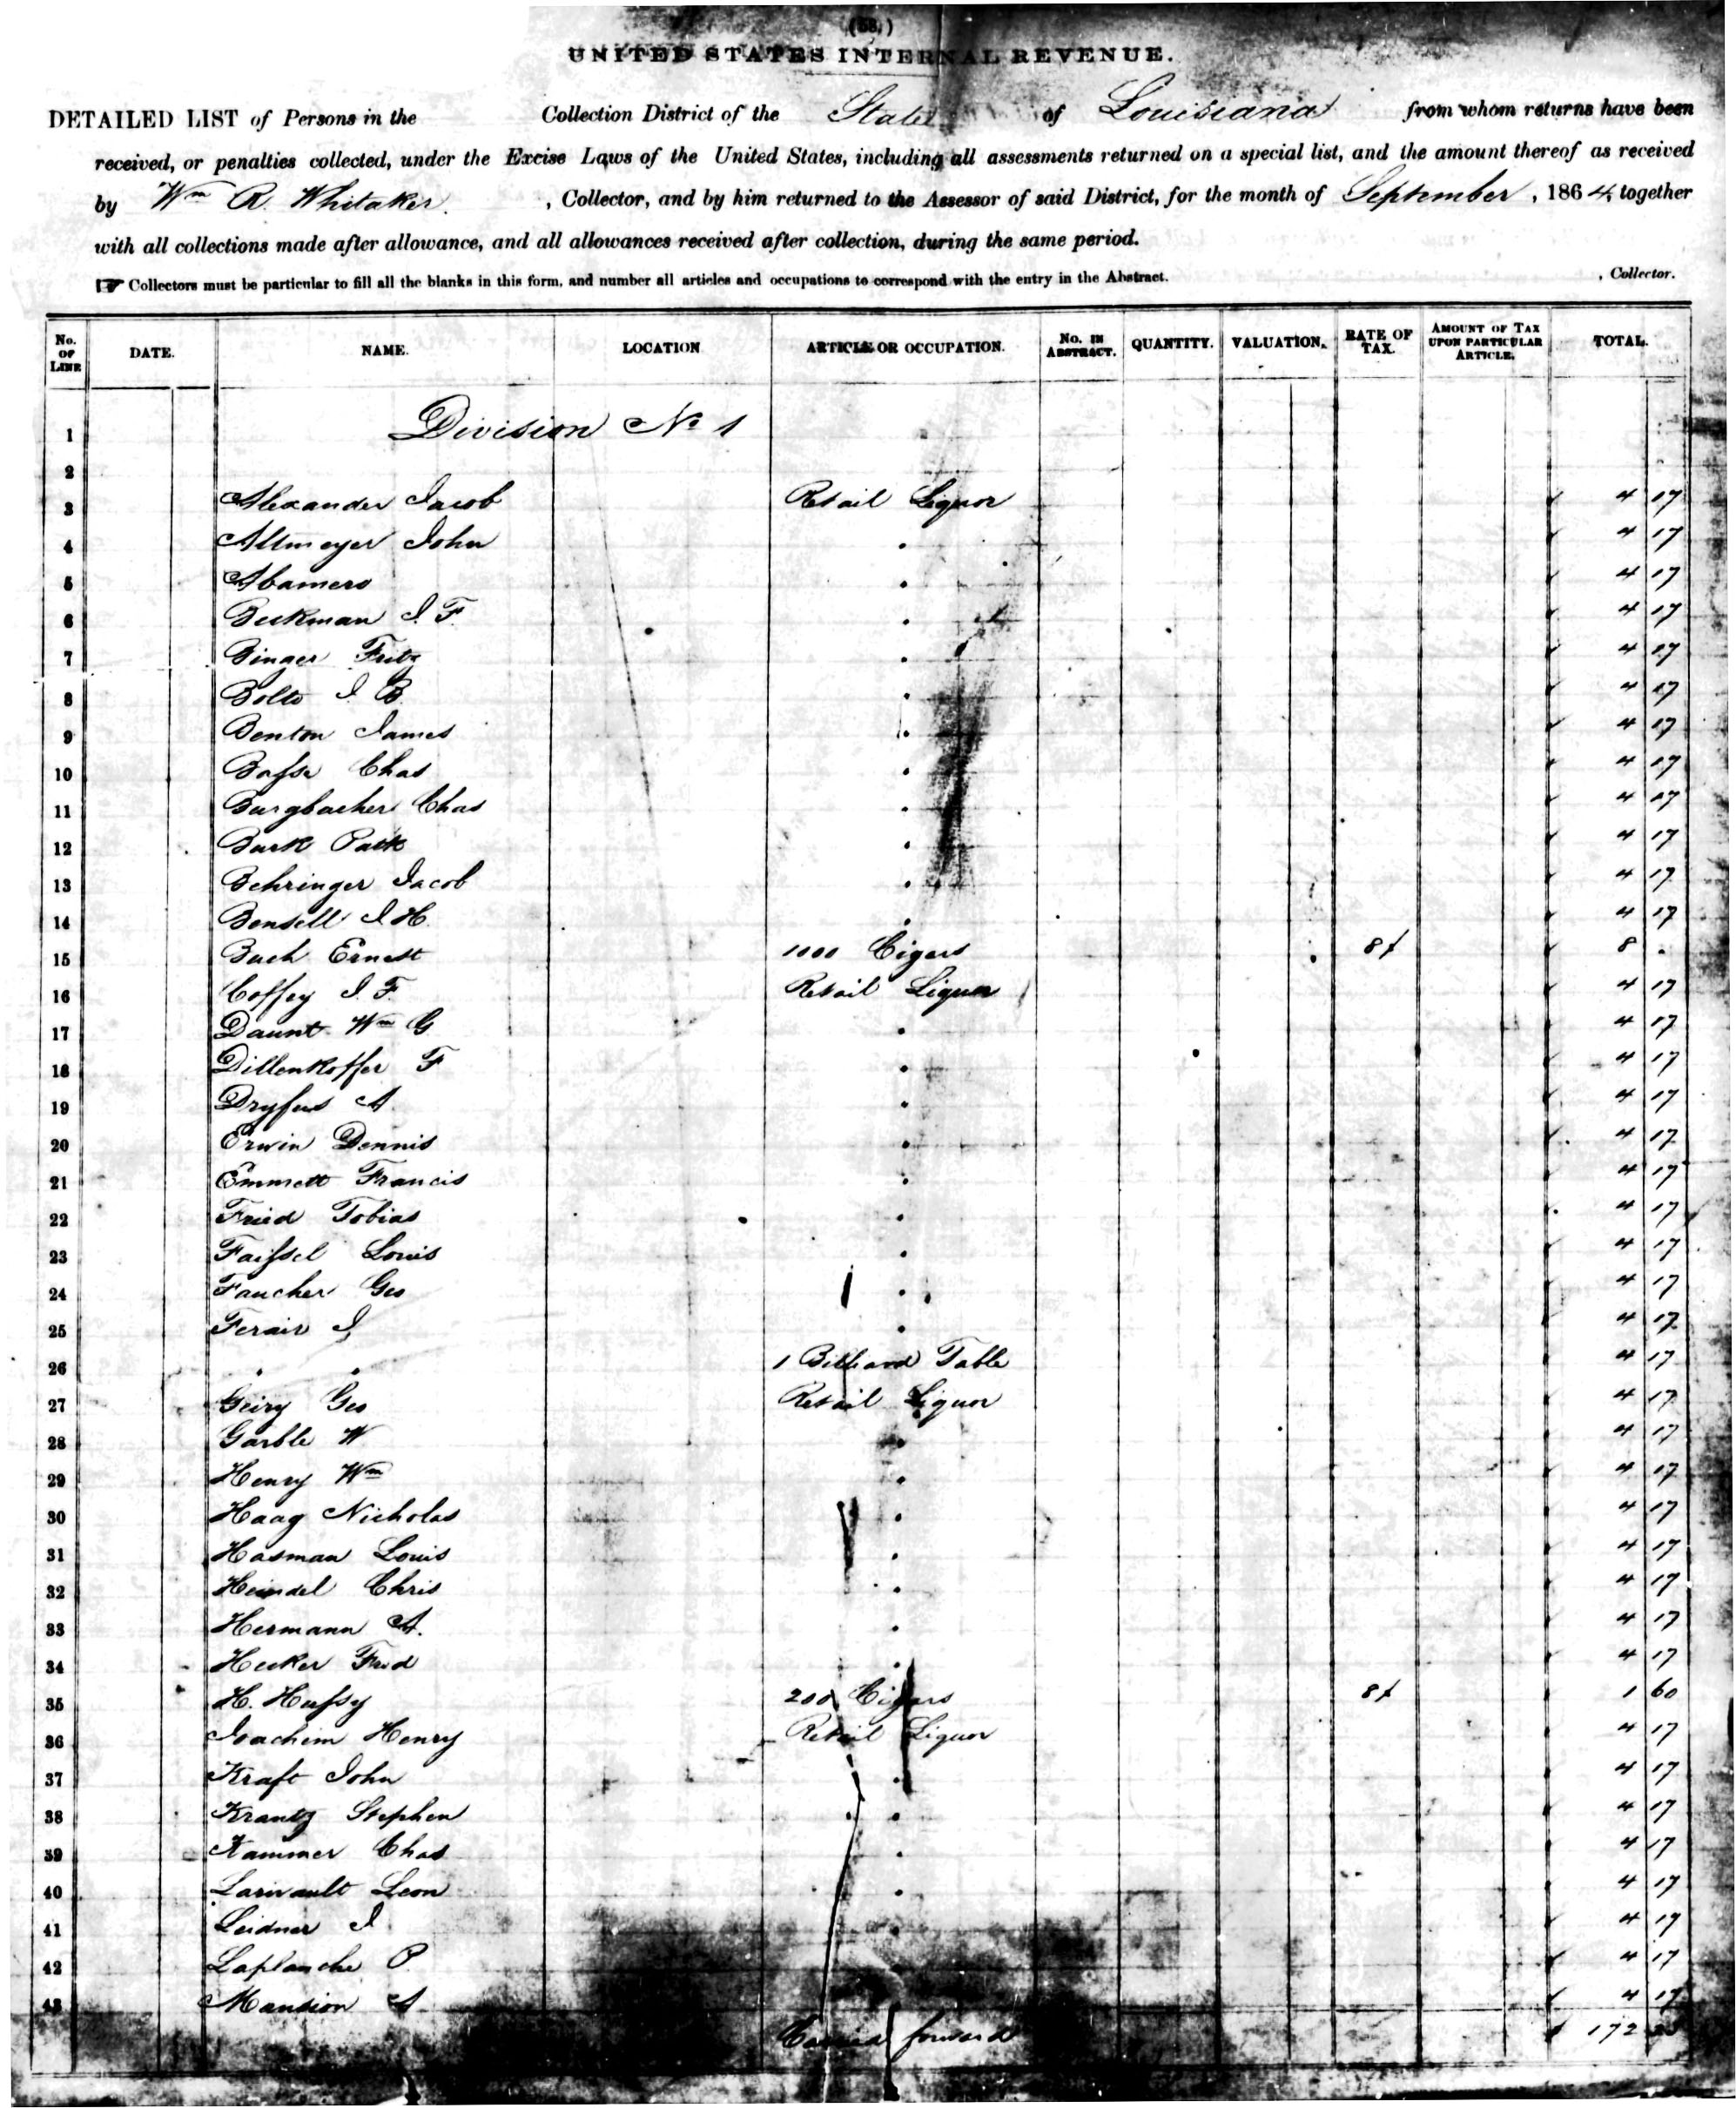 (58.)
UNITED STATES INTERNAL REVENUE.
DETAILED LIST of Persons in the Collection District of the State of Louisiana from whom returns have been
received, or penalties collected, under the Excise Laws of the United States, including all assessments returned on a special list, and the amount thereof as received
by Wm R. Whitaker. , Collector, and by him returned to the Assessor of said District, for the month of September, 1864, together
with all collections made after allowance, and all allowances received after collection, during the same period.
☞ Collectors must be particular to fill all the blanks in this form, and number all articles and occupations to correspond with the entry in the Abstract. , Collector.
No. OF LINE DATE. NAME. LOCATION ARTICLE OR OCCUPATION. No. IN ABSTRACT. QUANTITY. VALUATION. RATE OF TAX. AMOUNT OF TAX UPON PARTICULAR ARTICLE. TOTAL.
1 Division No 1
2
3 Alexander Jacob Retail Liquor 4 17
4 Altmeyer John " 4 17
5 Abamero " 4 17
6 Beekman J. F. " 4 17
7 Binger Fritz " 4 17
8 Bolto J. B. " 4 17
9 Benton James " 4 17
10 Basse Chas " 4 17
11 Burgbacher Chas " 4 17
12 Burk Patk " 4 17
13 Behringer Jacob " 4 17
14 Bensell J. H. " 4 17
15 Buch Ernest 1000 Cigars 8/ 8 .
16 Coffey J. F. Retail Liquor 4 17
17 Daunt Wm G " 4 17
18 Dillenkoffer F " 4 17
19 Dryfus A. " 4 17
20 Erwin Dennis " 4 17
21 Emmett Francis " 4 17
22 Fried Tobias " 4 17
23 Faissel Louis " 4 17
24 Faucher Geo " 4 17
25 Ferair J " 4 17
26 " " 1 Billiard Table 4 17
27 Geiry Geo Retail Liquor 4 17
28 Garble W " 4 17
29 Henry Wm " 4 17
30 Haag Nicholas " 4 17
31 Hasman Louis " 4 17
32 Heindel Chris " 4 17
33 Hermann A. " 4 17
34 Hecker Fred " 4 17
35 H. Hussy 200 Cigars 8/ 1 60
36 Joachim Henry Retail Liquor 4 17
37 Kraft John " 4 17
38 Krantz Stephen " 4 17
39 Kammer Chas " 4 17
40 Larivault Leon " 4 17
41 Leidner J " 4 17
42 Laplanche P. " 4 17
43 Mansion A 4 17
Carried forward 172